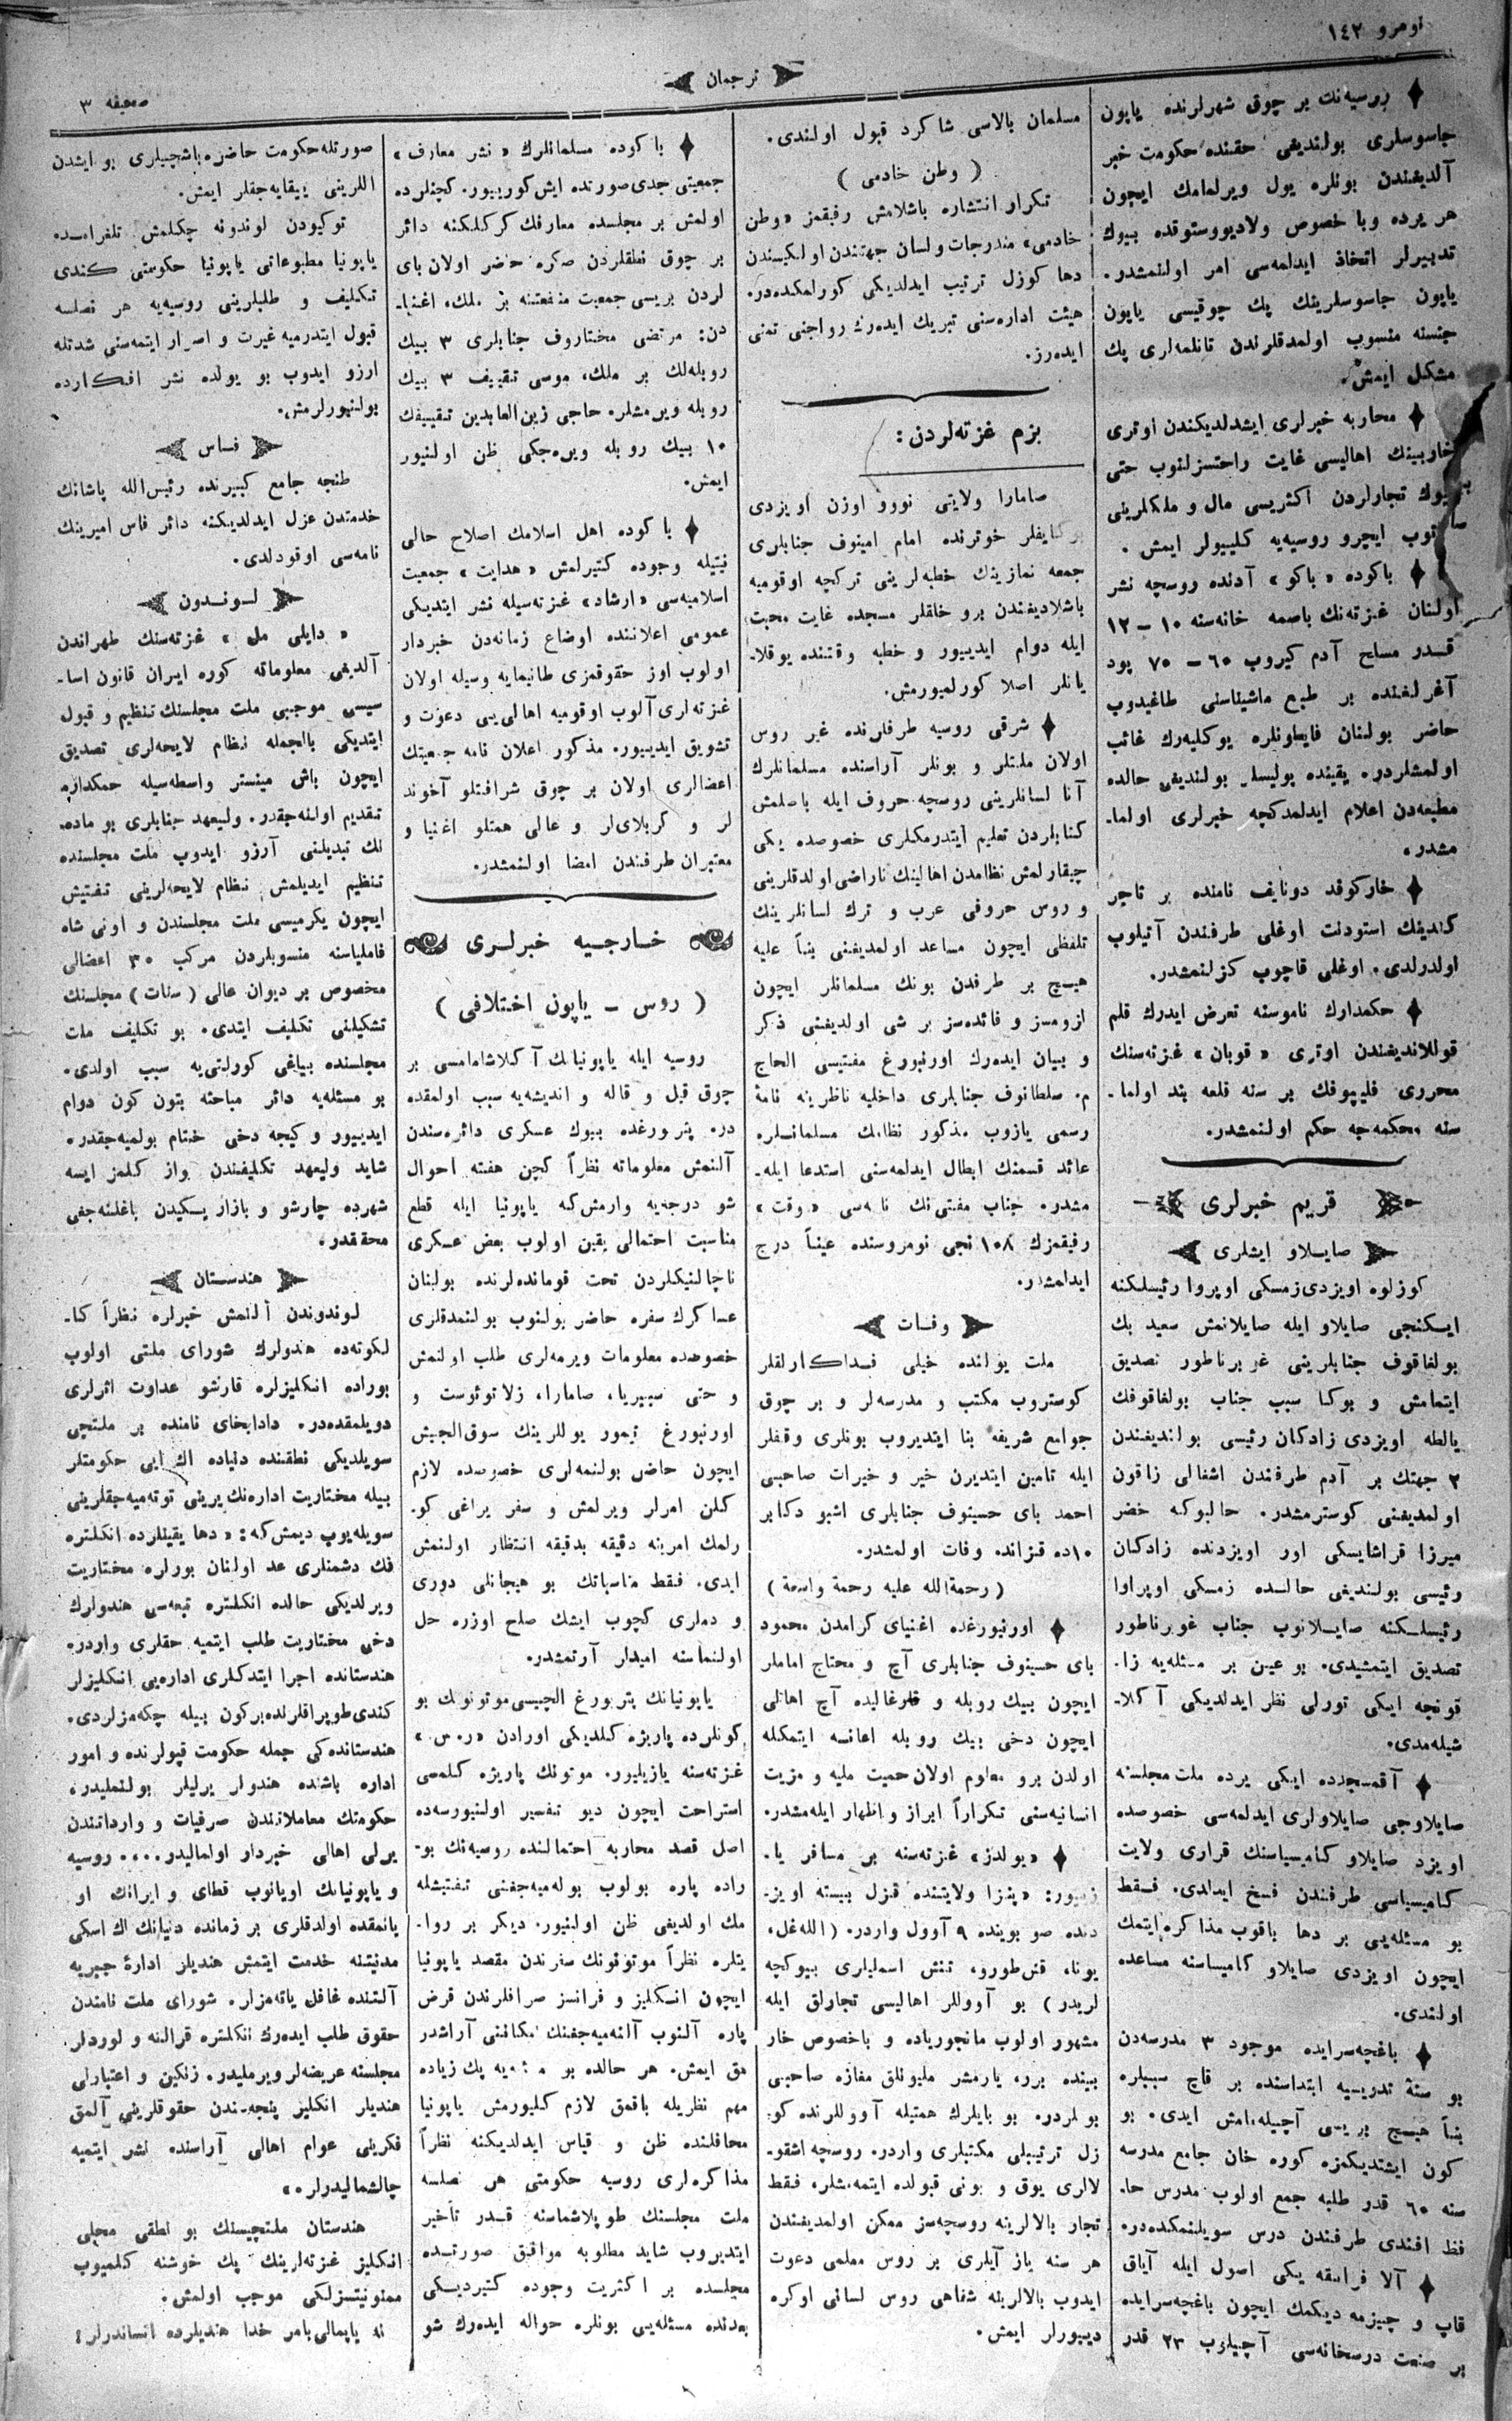 نومرو ١٤٢
ترجمان
صحيفه ٣
روسيه‌نك بر چوق شهرلرنده ياپون
جاسوسلری بولنديغی حقنده حكومت خبر
آلديغندن بونلره يول ويرلمامك ايچون
هر يرده وبا خصوص ولاديووستوقده بيوك
تدبيرلر اتخاذ ايدلمه‌سی امر اولنمشدر.
ياپون جاسوسلرينك پك چوقيسی ياپون
جنسنه منسوب اولمدقلرندن تانلمه‌لری پك
مشكل ايمش.
محاربه خبرلری ايشدلديكندن اوتری
خاربينك اهاليسی غايت راحتسزلنوب حتی
بيوك تجارلردن اكثريسی مال و ملكلرينی
صاتوب ايچرو روسيه‌يه كليیولر ايمش.
باكوده «باكو» آدنده روسچه نشر
اولنان غزته‌نك باصمه خانه‌سنه ١٠–١٢
قدر مسلح آدم كيروب ٦٠–٧٠ پود
آغرلغنده بر طبع ماشيناسنی طاغيدوب
حاضر بولنان فايطونلره يوكليه‌رك غائب
اولمشلردر. يقينده پوليسلر بولنديغی حالده
مطبعه‌دن اعلام ايدلمدكچه خبرلری اولما-
مشدر.
خاركوفد دونايف نامنده بر تاجر
كندينك استودنت اوغلی طرفندن آتيلوب
اولدرلدی. اوغلی قاچوب كزلنمشدر.
حكمدارك ناموسنه تعرض ايدرك قلم
قوللانديغندن اوتری «قوبان» غزته‌سنك
محرری فليپوفك بر سنه قلعه بند اولما-
سنه محكمه‌جه حكم اولنمشدر.
قريم خبرلری
صايلاو ايشلری
كوزلوه اويزدی زمسكی اوپروا رئيسلكنه
ايكنجی صايلاو ايله صايلانمش سعيد بك
بولغاقوف جنابلرينی غوبرناطور تصديق
ايتمامش و بوكا سبب جناب بولغاقوفك
يالطه اويزدی زادكان رئيسی بولنديغندن
٢ جهتك بر آدم طرفندن اشغالی زاقون
اولمديغنی كوسترمشدر. حالبوكه خضر
ميرزا قراشايسكی اور اويزدنده زادكان
رئيسی بولنديغی حالده زمسكی اوپراوا
رئيسلكنه صايلانوب جناب غوبرناطور
تصديق ايتمشيدی. بو عين بر مسئله‌يه زا-
قونچه ايكی تورلی نظر ايدلديكی آكلا-
شيله‌مدی.
آقمسجدده ايكی يرده ملت مجلسنه
صايلاوجی صايلاولری ايدلمه‌سی خصوصده
اويزد صايلاو كاميسياسنك قراری ولايت
كاميسياسی طرفندن فسخ ايدلدی. فقط
بو مسئله‌يی بر دها باقوب مذاكره ايتمك
ايچون اويزدی صايلاو كاميساسنه مساعده
اولندی.
باغچه‌سرايده موجود ٣ مدرسه‌دن
بو سنۀ تدريسيه ابتداسنده بر قاچ سببلره
بنأ هيچ بريسی آچيله‌مامش ايدی. بو
كون ايشتديكمزه كوره خان جامع مدرسه
سنه ٦٠ قدر طلبه جمع اولوب مدرس حا-
فظ افندی طرفندن درس سويلنمكده‌در.
آلا فرانقه يكی اصول ايله آياق
قاپ و چيزمه ديكمك ايچون باغچه‌سرايده
بر صنعت درسخانه‌سی آچيلوب ٢٣ قدر
مسلمان بالاسی شاكرد قبول اولندی.
(وطن خادمی)
تكرار انتشاره باشلامش رفيقمز «وطن
خادمی» مندرجات ولسان جهتندن اولكيسندن
دها كوزل ترتيب ايدلديكی كورلمكده‌در.
هيئت اداره‌سنی تبريك ايده‌رك رواجنی تمنی
ايده‌رز.
بزم غزته‌لردن:
صامارا ولايتی نووو اوزن اويزدی
خوترنده امام امينوف جنابلری
جمعه نمازينك خطبه‌لرينی تركچه اوقوميه
باشلاديغندن برو خلقلر مسجده غايت محبت
ايله دوام ايديیور و خطبه وقتنده يوقلا-
يانلر اصلا كورلميورمش.
شرقی روسيه طرفلرنده غير روس
اولان ملتلر و بونلر آراسنده مسلمانلرك
آنا لسانلرينی روسچه حروف ايله باصلمش
كتابلردن تعليم ايتدرمكلری خصوصده يكی
چيقارلمش نظامدن اهالينك ناراضی اولدقلرينی
و روس حروفی عرب و ترك لسانلرينك
تلفظی ايچون مساعد اولمديغنی بنأ عليه
هيچ بر طرفدن بونك مسلمانلر ايچون
لزومسز و فائده‌سز بر شی اولديغنی ذكر
و بيان ايده‌رك اورنبورغ مفتيسی الحاج
م. سلطانوف جنابلری داخليه ناظرينه نامۀ
رسمی يازوب مذكور نظامك مسلمانلره
عائد قسمنك ابطال ايدلمه‌سنی استدعا ايله-
مشدر. جناب مفتی‌نك نامه‌سی «وقت»
رفيقمزك ١٠٨ نجی نومروسنده عيناً درج
ايدلمشدر.
وفات
ملت يولنده خيلی فداكارلقلر
كوستروب مكتب و مدرسه‌لر و بر چوق
جوامع شريفه بنا ايتديروب بونلری وقفلر
ايله تامين ايتديرن خير و خيرات صاحبی
احمد بای حسينوف جنابلری اشبو دكابر
١٠ده قزانده وفات اولمشدر.
(رحمةالله عليه رحمة واسعة)
اورنبورغده اغنيای كرامدن محمود
بای حسينوف جنابلری آچ و محتاج اماملر
ايچون بيك روبله و قارغاليده آچ اهالی
ايچون دخی بيك روبله اعانه ايتمكله
اولدن برو معلوم اولان حميت مليه و مزيت
انسانيه‌سنی تكراراً ابراز و اظهار ايله‌مشدر.
«يولدز» غزته‌سنه بر مسافر يا-
زيیور: «پنزا ولايتنده قزل بيسته اويز-
دنده صو بوينده ٩ آوول واردر.
لريدر) بو آووللر اهاليسی تجارلق ايله
مشهور اولوب مانجورياده و باخصوص خار
بينده برر، يارمشر مليونلق مغازه صاحبی
بولردر. بو بايلرك همتيله آووللرنده كو-
زل ترتيبلی مكتبلری واردر. روسچه اشقو-
لالری يوق و بونی قبولده ايتمه‌مشلر، فقط
تجار بالالرينه روسچه‌سز ممكن اولمديغندن
هر سنه ياز آيلری بر روس معلمی دعوت
ايدوب بالالرينه شفاهی روس لسانی اوكره
ديیورلر ايمش.
باكوده مسلمانلرك «نشر معارف»
جمعيتی جدی صورتده ايش كوریيور. كچنلرده
اولمش بر مجلسده معارفك كركلكنه دائر
بر چوق نطقلردن صكره حاضر اولان بای
لردن بريسی جمعيت منفعتنه بر ملك، اغنيا-
دن: مرتضی مختاروف جنابلری ٣ بيك
روبله‌لك بر ملك، موسی تقييف ٣ بيك
روبله ويرمشلر. حاجی زين العابدين تقييفك
١٠ بيك روبله ويره‌جكی ظن اولنيور
ايمش.
باكوده اهل اسلامك اصلاح حالی
نيتيله وجوده كتيرلمش «هدايت» جمعيت
اسلاميه‌سی «ارشاد» غزته‌سيله نشر ايتديكی
عمومی اعلاننده اوضاع زمانه‌دن خبردار
اولوب اوز حقوقمزی طانيمايه وسيله اولان
غزته‌لری آلوب اوقوميه اهالی‌يی دعوت و
تشويق ايديیور. مذكور اعلان نامه جمعيتك
اعضالری اولان بر چوق شرافتلو آخوند
لر و كربلای‌لر و عالی همتلو اغنيا و
معتبران طرفندن امضا اولنمشدر.
خارجيه خبرلری
(روس – ياپون اختلافی)
روسيه ايله ياپونيانك آكلاشامامسی بر
چوق قيل و قاله و انديشه‌يه سبب اولمقده
در. پتربورغده بيوك عسكری دائره‌سندن
آلنمش معلوماته نظراً كچن هفته احوال
شو درجه‌يه وارمش‌كه ياپونيا ايله قطع
مناسبت احتمالی يقين اولوب بعض عسكری
ناچالنيكلردن تحت قومانده‌لرنده بولنان
عساكرك سفره حاضر بولنوب بولنمدقلری
خصوصده معلومات ويرمه‌لری طلب اولنمش
و حتی سيبيريا، صامارا، زلاتوئوست و
اورنبورغ تيمور يوللرينك سوق‌الجيش
ايچون حاضر بولنمه‌لری خصوصده لازم
كلن امرلر ويرلمش و سفر يراغی كو-
رلمك امرينه دقيقه بدقيقه انتظار اولنمش
ايدی. فقط مناسباتك بو هيجانلی دوری
و دملری كچوب ايشك صلح اوزره حل
اولنماسنه اميدلر آرتمشدر.
ياپونيانك پتربورغ الچيسی موتونونك بو
كونلرده پاريژه كلديكی اورادن «ر.س»
غزته‌سنه يازيليور. موتونك پاريژه كلمسی
استراحت ايچون ديو تفسير اولنيورسه‌ده
اصل قصد محاربه احتمالنده روسيه‌نك بو-
راده پاره بولوب بوله‌ميه‌جغنی تفتيشله
مك اولديغی ظن اولنيور. ديكر بر روا-
يتلره نظراً موتونونك سفرندن مقصد ياپونيا
ايچون انكليز و فرانسز صرافلرندن قرض
پاره آلنوب آلنه‌ميه‌جغنك امكاننی آراشدر
مق ايمش. هر حالده بو مسئله‌يه پك زياده
مهم نظريله باقمق لازم كليورمش ياپونيا
محافلنده ظن و قياس ايدلديكنه نظراً
مذاكره‌لری روسيه حكومتی هر نصلسه
ملت مجلسنك طوپلاشماسنه قدر تأخير
ايتديروب شايد مطلوبه موافق صورتده
مجلسده بر اكثريت وجوده كتيرديكی
بعدنده مسئله‌يی بونلره حواله ايده‌رك شو
صورتله حكومت حاضره باشچيلری بو ايشدن
اللرينی ييقايه‌جقلر ايمش.
توكيودن لوندونه چكلمش تلغرامده
ياپونيا مطبوعاتی ياپونيا حكومتی كندی
تكليف و طلبلرينی روسيه‌يه هر نصلسه
قبول ايتدرميه غيرت و اصرار ايتمه‌سنی شدتله
ارزو ايدوب بو يولده نشر افكارده
بولنيورلرمش.
فاس
طنجه جامع كبيرنده رئيس الله پاشانك
خدمتدن عزل ايدلديكنه دائر فاس اميرينك
نامه‌سی اوقودلدی.
لوندون
«دايلی مل» غزته‌سنك طهراندن
آلديغی معلوماته كوره ايران قانون اسا-
سيسی موجبی ملت مجلسنك تنظيم و قبول
ايتديكی بالجمله نظام لايحه‌لری تصديق
ايچون باش مينستر واسطه‌سيله حكمداره
تقديم اولنه‌جقدر. وليعهد جنابلری بو ماده-
نك تبديلنی آرزو ايدوب ملت مجلسنده
تنظيم ايديلمش نظام لايحه‌لرينی تفتيش
ايچون يكرميسی ملت مجلسندن و اونی شاه
فاملياسنه منسوبلردن مركب ٣٠ اعضالی
مخصوص بر ديوان عالی (سنات) مجلسنك
تشكيلنی تكليف ايتدی. بو تكليف ملت
مجلسنده بياغی كورلتی‌يه سبب اولدی.
بو مسئله‌يه دائر مباحثه بتون كون دوام
ايديیور و كيجه دخی ختام بولميه‌جقدر.
شايد وليعهد تكليفندن واز كلمز ايسه
شهرده چارشو و بازار يكيدن باغلنه‌جغی
محققدر.
هندستان
لوندوندن آلنمش خبرلره نظراً كا-
لكوته‌ده هندولرك شورای ملتی اولوب
بوراده انكليزلره قارشو عداوت اثرلری
دويلمقده‌در. دادابخای نامنده بر ملتچی
سويلديكی نطقنده دنياده اك ايی حكومتلر
بيله مختاريت اداره‌نك يرينی توته‌ميه‌جقلرينی
سويله‌يوب ديمش‌كه: «دها يقينلرده انكلتره
نك دشمنلری عد اولنان بورلره مختاريت
ويرلديكی حالده انكلتره تبعه‌سی هندولرك
دخی مختاريت طلب ايتميه حقلری واردر.
هندستانده اجرا ايتدكلری اداره‌يی انكليزلر
كندی طوپراقلرنده بر كون بيله چكه‌مزلردی.
هندستانده‌كی جمله حكومت قپولرنده و امور
اداره باشنده هندولر يرليلر بولنمليدر.
حكومتك معاملاتندن صرفيات و وارداتندن
يرلی اهالی خبردار اولماليدر.... روسيه
و ياپونيانك اويانوب قطای و ايرانك او
يانمقده اولدقلری بر زمانده دنيانك اك اسكی
مدنيتنه خدمت ايتمش هنديلر ادارۀ جبريه
آلتنده غافل ياته‌مزلر. شورای ملت نامندن
حقوق طلب ايده‌رك انكلتره قرالنه و لوردلر
مجلسنه عريضه‌لر ويرمليدر. زنكين و اعتبارلی
هنديلر انكليز پنجه‌سندن حقوقلرينی آلمق
فكرينی عوام اهالی آراسنده نشر ايتميه
چالشماليدرلر.»
هندستان ملتچيسنك بو نطقی محلی
انكليز غزته‌لرينك پك خوشنه كلميوب
ممنونيتسزلكی موجب اولمش.
نه ياپمالی بامر خدا هنديلرده انساندرلر!